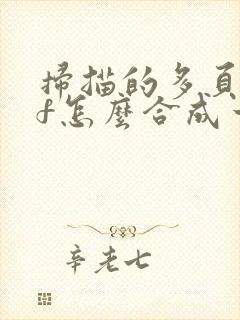 掃描的多頁
f怎麼合成
辛老七